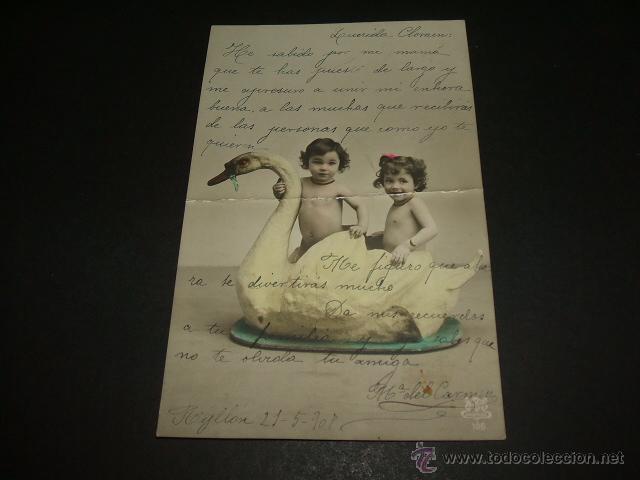 Querida Clomen:
He sabido por me mamá
que te has puest de largo y
me apresuro a unir mi enhora
buena, a las muchas que recibiras
de las personas que como yo te
quieren
Me figuro que aho
ra te divertirás mucho
Da mis recuerdos
a tu familia y y sabes que
no te olvida tu amiga
Mª del Carmen
Ayllón 21-5-908
106
www.todocoleccion.net